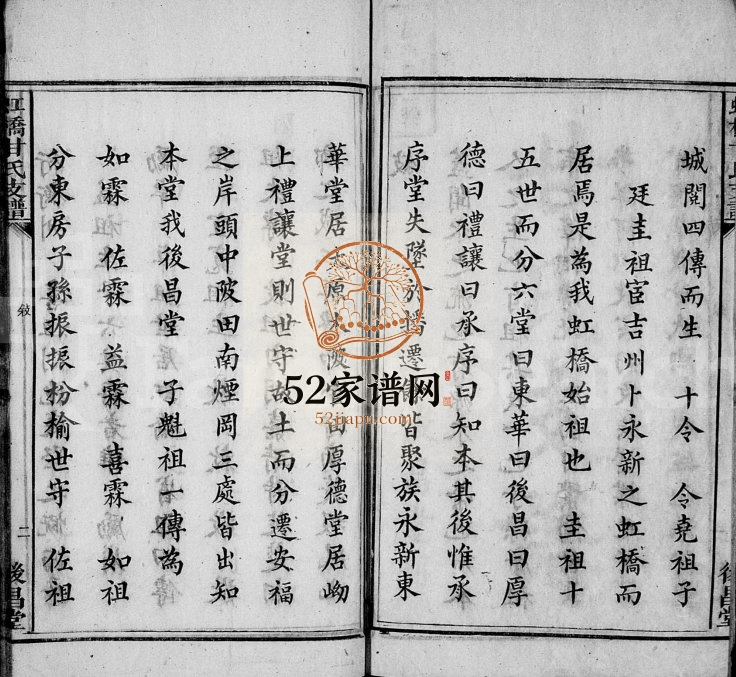 城閱四傳而生 十令 令堯祖子
廷圭祖宦吉州卜永新之虹橋而
居焉是為我虹橋始祖也 圭祖十
五世而分六堂曰東華曰後昌曰厚
德曰禮讓曰承序曰知本其後惟承
序堂失墜於播遷皆聚族永新東
華堂居原水厚德堂居岰
上禮讓堂則世守故土而分遷安福
之岸頭中陂田南煙岡三處皆出知
本堂我後昌堂 子魁祖一傳為
如霖 佐霖 益霖 喜霖 如祖
分東房子孫振振枌榆世守 佐祖
虹橋甘氏支譜
敘
二
後昌堂
52家谱网
52jiapu.com